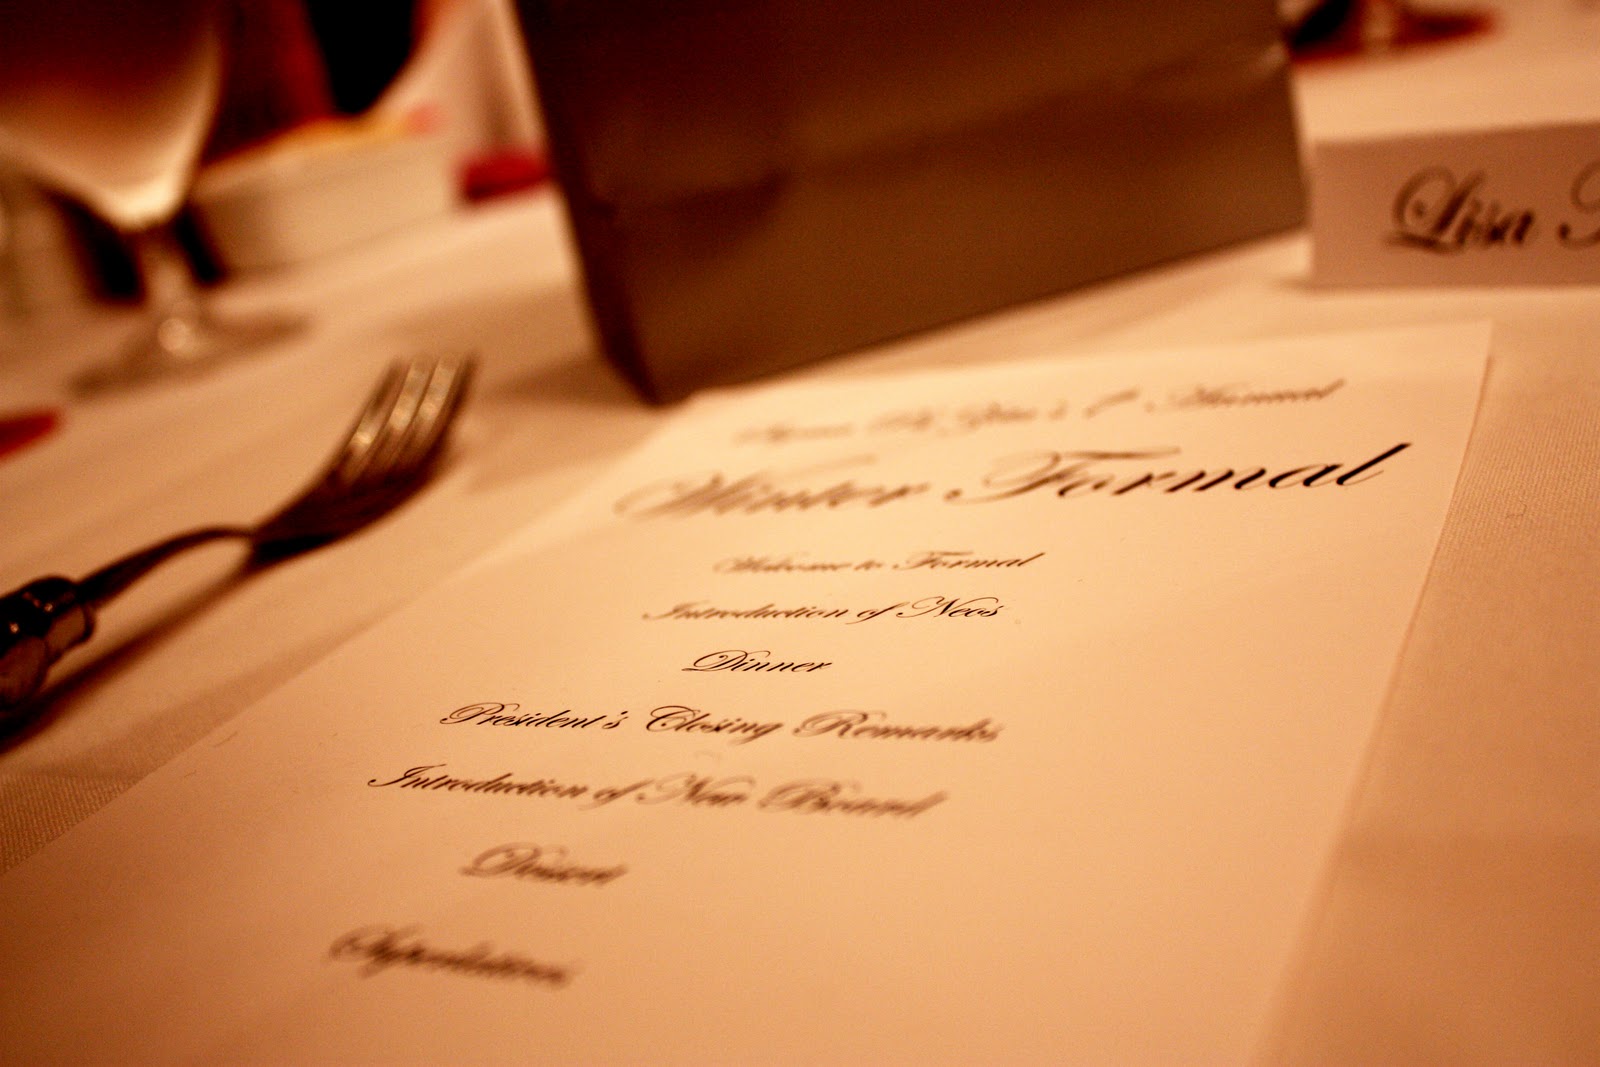 Winter Formal
Welcome to Formal
Introduction of Neos
Dinner
President's Closing Remarks
Introduction of New Board
Dessert
Superlatives
Lisa